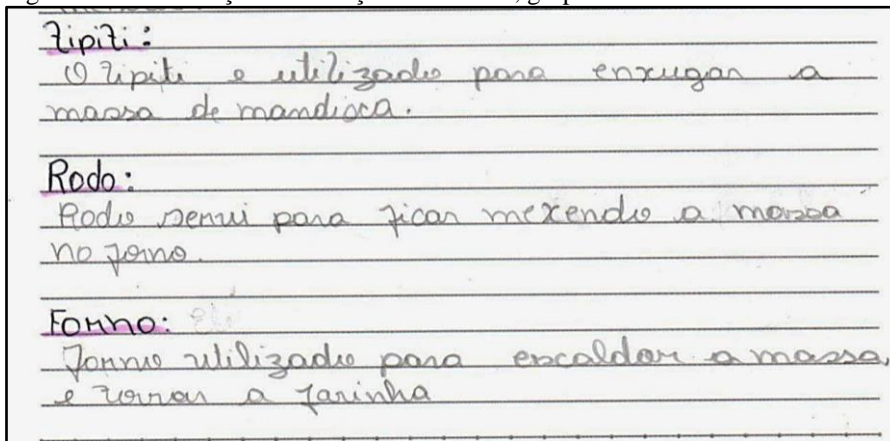 Tipiti:
O tipiti e utilizado para enxugar a
massa de mandioca.
Rodo:
Rodo servi para ficar mexendo a massa
no forno.
Forno:
Forno utilizado para escaldar a massa,
e torrar a farinha